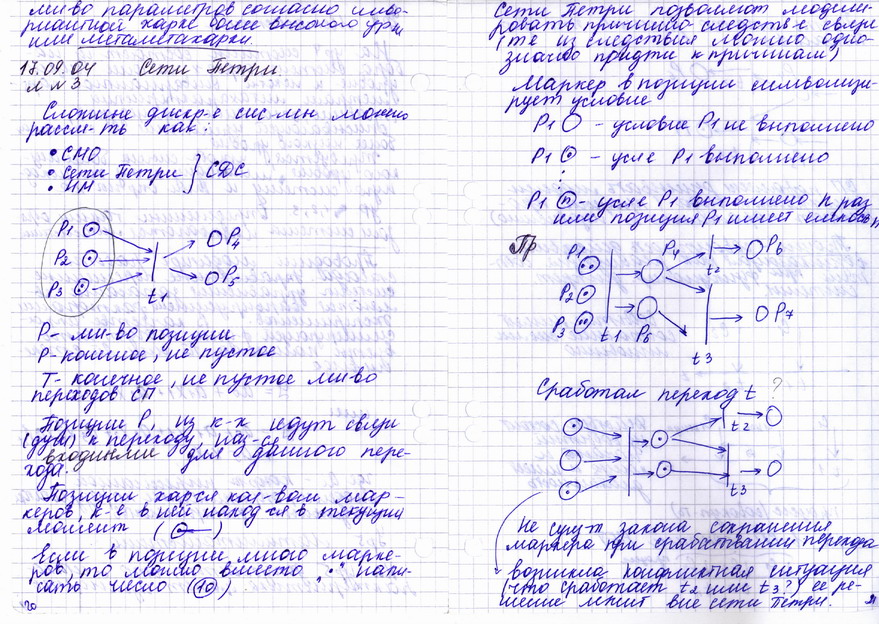 мн-во параметров согласно инва-
риантной харке более высокого урня
или метаметахарки.
17.09.04 Сети Петри.
Л N3
Сложные дискр-е сис-мы можно
рассм-ть как:
• СМО
• Сети Петри } СДС
• ИМ
P1 P2 P3 t1 P4 P5
P- мн-во позиций
P-конечное, не пустое
T- конечное, не пустое мн-во
переходов СП
Позиции P, из к-х идут связи
(дуги) к переходу, наз-ся
входными для данного пере-
хода.
Позиции харся кол-вом мар-
керов, к-е в ней наход-ся в текущий
момент ( )
Если в позиции много марке-
ров, то можно вместо "•" напи-
сать число (10)
20
Сети Петри позволяют модели-
ровать причинно-следств-е связи
(те из следствия можно одно-
значно придти к причинам)
Маркер в позиции символизи-
рует условие
P1 – условие P1 не выполнено
P1 – усл-е P1 выполнено
⋮
P1 (n) – усл-е P1 выполнено n раз
или позиция P1 имеет емкость n
Пр
P1 P2 P3 t1 P4 P5 t2 P6 t3 P7
Сработал переход t ?
t2
t3
Не сущ-т закона сохранения
маркера при срабатывании перехода
возникла конфликтная ситуация
(что сработает t2 или t3?) ее ре-
шение лежит вне сети Петри.
21